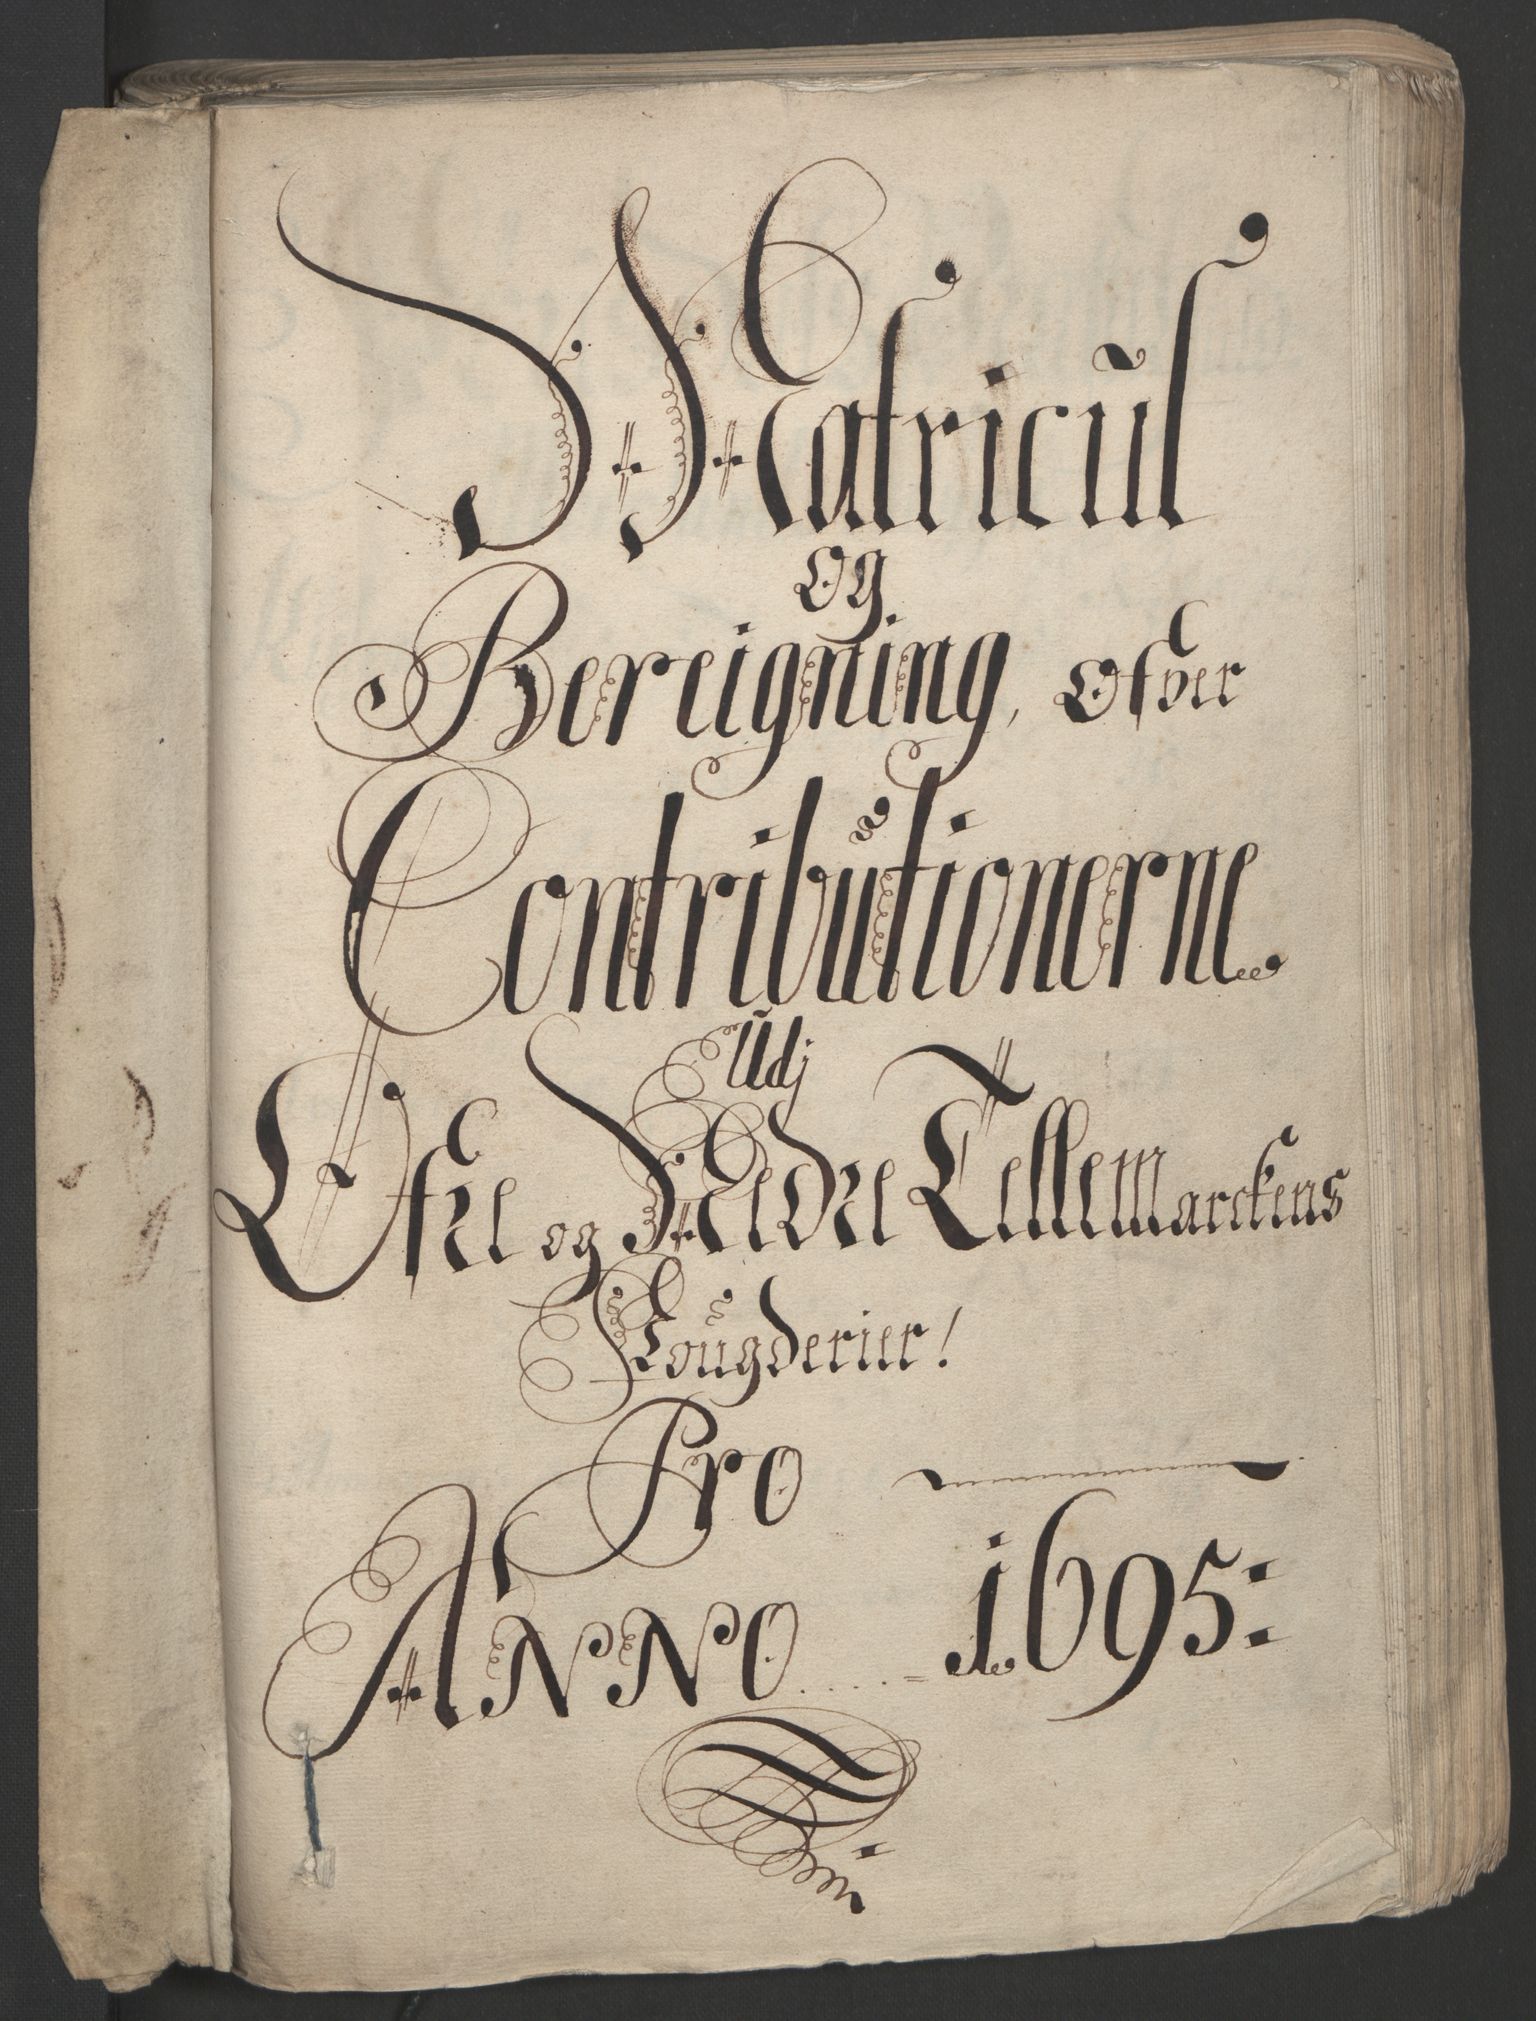 Matricul
og
Bereigning, Ofver
Contributionerne
Udj
Øfre og Nedre Tellemarckens
Fougderier!
Pro
Anno ..... 1695: